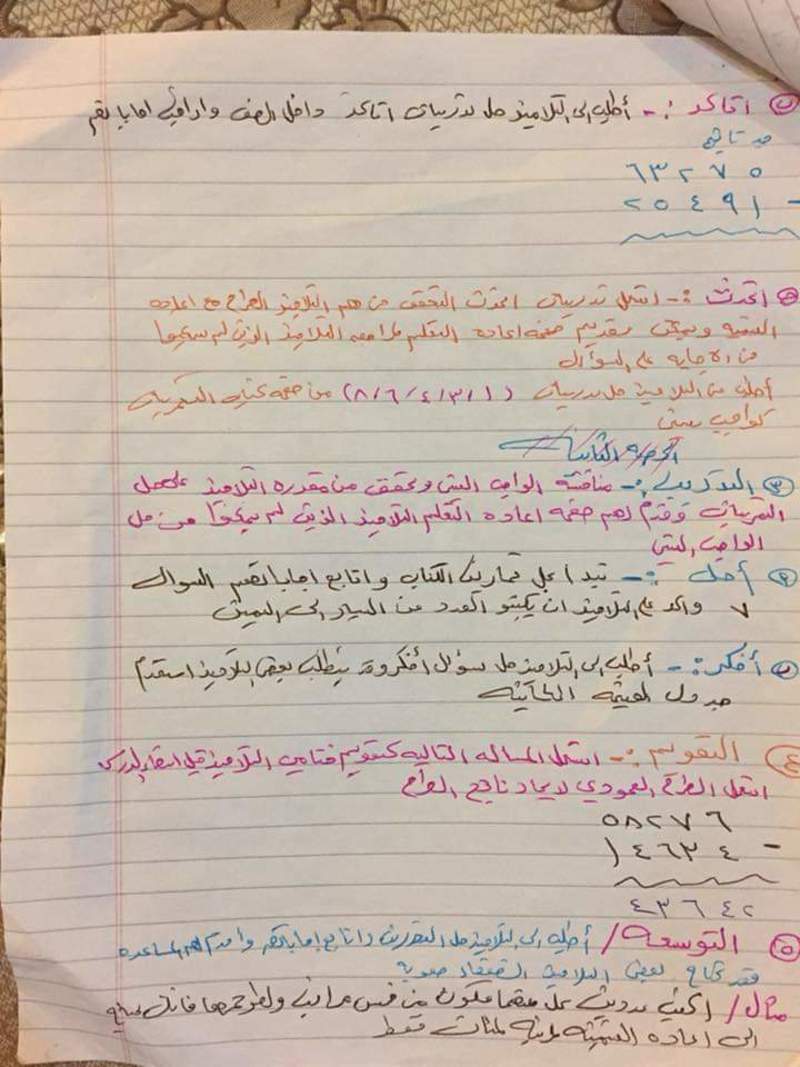 ٥ اتأكد :- أطلب الى التلاميذ حل تدريبات اتأكد داخل الصف واراقب اجاباتهم
جد ناتج
٦٣٢٧٥
٢٥٤٩١ -
٥ اتحدث :- استعمل تدريبات اتحدث التحقق من فهم التلاميذ الطرح مع اعاده
التسميه ويمكن تقديم صفحه اعاده التعليم لمراجعه التلاميذ الذين لم يتمكنوا
من الاجابه على السؤال
أطلب من التلاميذ حل تدريبات (٨/٦/٤/٣/١) من صفحه كتاب التمرينات
كواجب بيتي
الحصه الثانيه
٣ التدريب :- مناقشه الواجب البيتي وتحقق من مقدره التلاميذ على حل
التمرينات وقدم لهم صفحه اعاده التعليم التلاميذ الذين لم يتمكنوا من حل
الواجب البيتي
٤ أحل :- تبدأ بحل تمارين الكتاب واتابع اجاباتهم السؤال
٧ واكد على التلاميذ ان يكتبو العدد من اليسار الى اليمين
٥ أفكر :- أطلب الى التلاميذ حل سؤال أفكر وقد يتطلب بعض التلاميذ استخدام
جدول القيمه المكانيه
٤ التقويم :- استعمل المساله التاليه كتقويم ختامي التلاميذ قبل انتهاء الدرس
استعمل الطرح العمودي لايجاد ناتج الطرح
٥٨٢٧٦
١٤٦٣٤ -
٤٣٦٤٢
٥ التوسعه / أطلب الى التلاميذ حل التمرين واتابع اجاباتهم واقدم لهم المساعده
فقد تحتاج بعض التلاميذ الضعفاء صعوبه
مثال / اكتب عددين كل منهما مكون من خمس مراتب ولطرحهما فانك تحتاج
الى اعاده التسميه مرتبه المئات فقط